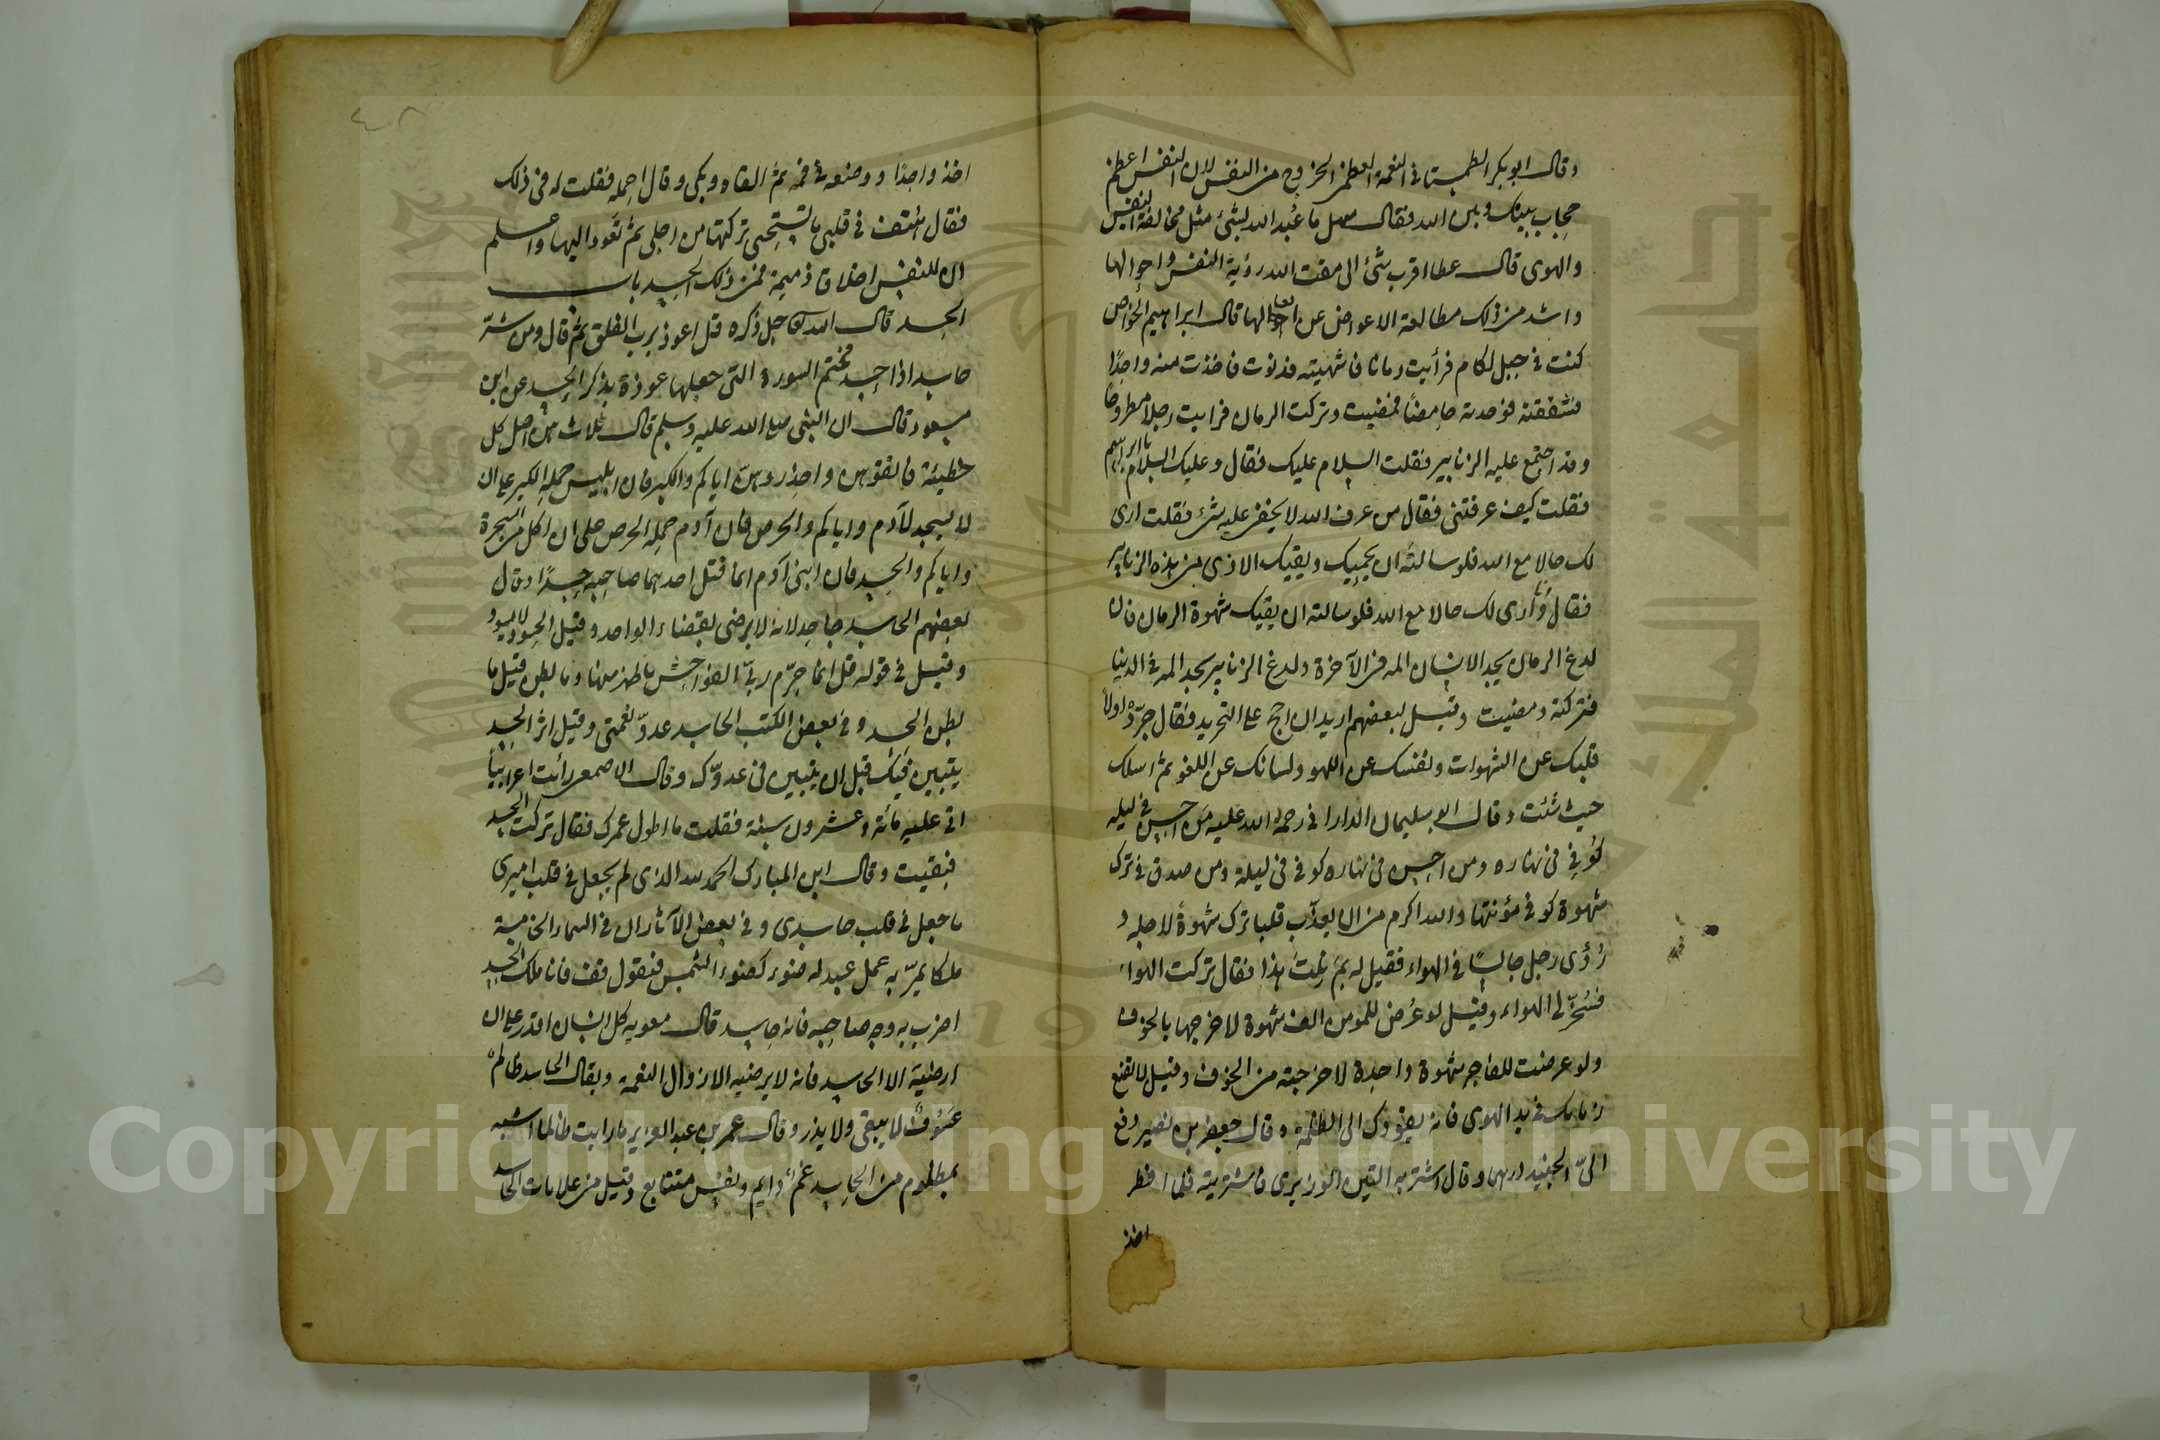 وقال ابو بكر الطمستاني النعمة العظمى الخروج من النفس لان النفس اعظم
حجاب بينك وبين الله وقال سهل ما عُبد الله بشئ مثل مخالفة النفس
والهوى قال عطا اقرب شئ الى مقت الله رؤية النفس واحوالها
واشد من ذلك مطالعة الاعواض عن افعالها قال ابراهيم الخواص
كنت في جبل لكام فرأيت رمانا فاشتهيته فدنوت فاخذت منه واحدًا
فشققته فوجدته حامضًا فمضيت وتركت الرمان فرايت رجلا مطروحًا
وقد اجتمع عليه الزنابير فقلت السلام عليك فقال وعليك السلام يا ابراهيم
فقلت كيف عرفتني فقال من عرف الله لا يخفى عليه شئ فقلت ارى
لك حالا مع الله فلو سالته ان يحميك ويقيك الاذى من هذه الزنابير
فقال وارى لك حالا مع الله فلو سالته ان يقيك شهوة الرمان فان
لدغ الرمان يجد الانسان المه في الآخرة ولدغ الزنابير يجد المه في الدنيا
فتركته ومضيت وقيل لبعضهم اريد ان احج على التجريد فقال جرّد اولاً
قلبك عن الشهوات ونفسك عن اللهو ولسانك عن اللغو ثم اسلك
حيث شئت وقال ابو سليمان الداراني رحمة الله عليه من احسن في ليله
كُوفى في نهاره ومن احسن في نهاره كوفى في ليله ومن صدق في ترك
شهوة كوفى مؤنتها والله اكرم من ان يعذب قلبا ترك شهوةً لاجله و
رُؤى رجل جالسًا في الهواء فقيل له بم نِلتَ هذا فقال تركت الهوا
فسُخّر لي الهواء وقيل لو عُرض للمومن الف شهوة لاخرجها بالخوف
ولو عرضت للفاجر شهوة واحدة لاخرجته من الخوف وقيل لا تضع
زمامك في يد الهوى فانه يقودك الى الظلمة وقال جعفر بن نصير دفع
الىّ الجنيد درهما وقال اشتر به التين الوزيرى فاشتريته فلما افطر
اخذ
٤٠٨
اخذ واحدًا ووضعه في فمه ثم القاه وبكى وقال احمله فقلت له في ذلك
فقال هتف في قلبي ما تستحى تركتها من اجلى ثم تعود اليها واعلم
ان للنفس اخلاقا ذميمة فمن ذلك الحسد باب
الحسد قال الله جل ذكره قل اعوذ برب الفلق ثم قال ومن شرّ
حاسد اذا حسد فختم السورة التى جعلها عوذة بذكر الحسد عن ابن
مسعود قال ان النبى صلى الله عليه وسلم قال ثلاث هن اصل كل
خطيئة فاتقوهن واحذروهن اياكم والكبر فان ابليس حمله الكبر على ان
لا يسجد لآدم واياكم والحرص فان آدم حمله الحرص على ان اكل من الشجرة
واياكم والحسد فان ابنى آدم انما قتل احدهما صاحبه حسدًا وقال
بعضهم الحاسد جاحد لانه لا يرضى بقضاء الواحد وقيل الحسود لا يسود
وقيل في قوله قل انما حرّم ربّى الفواحش ما ظهر منها وما بطن قيل ما
بطن الحسد وفي بعض الكتب الحاسد عدوّ نعمتى وقيل اثر الحسد
يتبين فيك قبل ان يتبين في عدوّك وقال الاصمعى رأيت اعرابيّا
اتى عليه مائة وعشرون سنة فقلت ما اطول عمرك فقال تركت الحسد
فبقيت وقال ابن المبارك الحمد لله الذى لم يجعل في قلب اميرى
ما جعل في قلب حاسدى وفي بعض الآثار ان في السماء الخامسة
ملكا يمرّ به عمل عبد له ضوء كضوء الشمس فيقول قف فانا ملك الحسد
اضرب به وجه صاحبه فانه حاسد قال معويه كل انسان اقدر على ان
ارضيه الا الحاسد فانه لا يرضيه الا زوال النعمة ويقال الحاسد ظالمٌ
غشومٌ لا يبقى ولا يذر وقال عمر بن عبد العزيز ما رايت ظالما اشبه
بمظلوم من الحاسد غمّ دايم ونفس متتابع وقيل من علامات الحاسد
Copyright © King Saud University